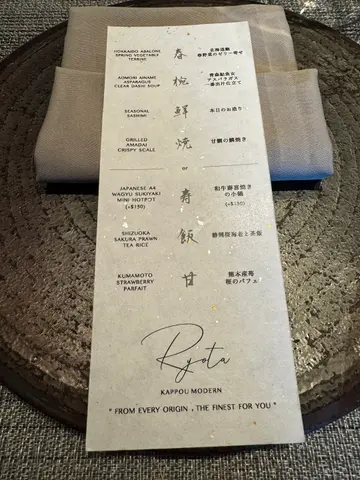 HOKKAIDO ABALONE
SPRING VEGETABLE
TERRINE
春
北海道鮑
春野菜のゼリー寄せ
AOMORI AINAME
ASPARAGUS
CLEAR DASHI SOUP
椀
青森鮎魚女
アスパラガス
一番出汁仕立て
SEASONAL
SASHIMI
鮮
本日のお造り
GRILLED
AMADAI
CRISPY SCALE
焼
甘鯛の鱗焼き
or
JAPANESE A4
WAGYU SUKIYAKI
MINI HOTPOT
(+$150)
寿
和牛壽喜焼き
の小鍋
(+$150)
SHIZUOKA
SAKURA PRAWN
TEA RICE
飯
静岡桜海老と茶飯
KUMAMOTO
STRAWBERRY
PARFAIT
甘
熊本産苺
桜のパフェ
Ryota
KAPPOU MODERN
" FROM EVERY ORIGIN , THE FINEST FOR YOU "